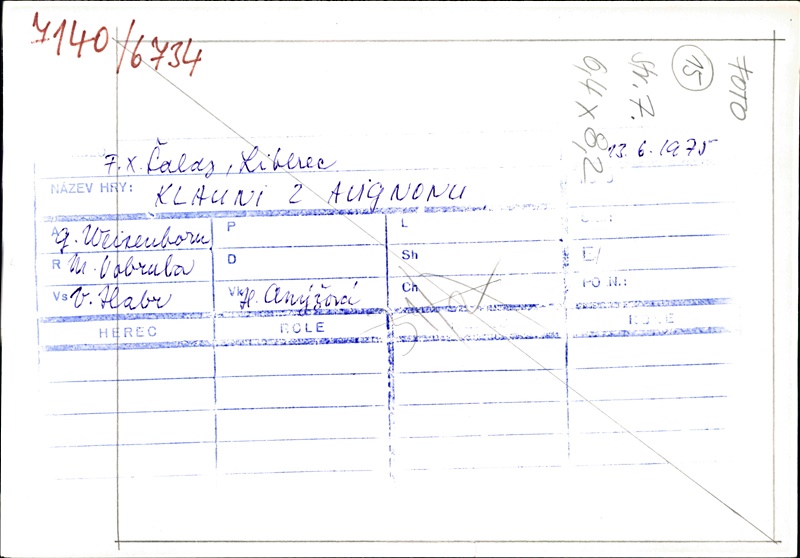 7140/6734
FOTO
15
str. 7.
6,4 x 8,2
F. X. Šalda, Liberec
13. 6. 1975
NÁZEV HRY: KLAUNI Z AVIGNONU
A G. Weisenborn P L
R M. Vobruba D Sh E/
Vs V. Habr Vk H. Anýžová Ch PO.N.:
HEREC ROLE ROLE